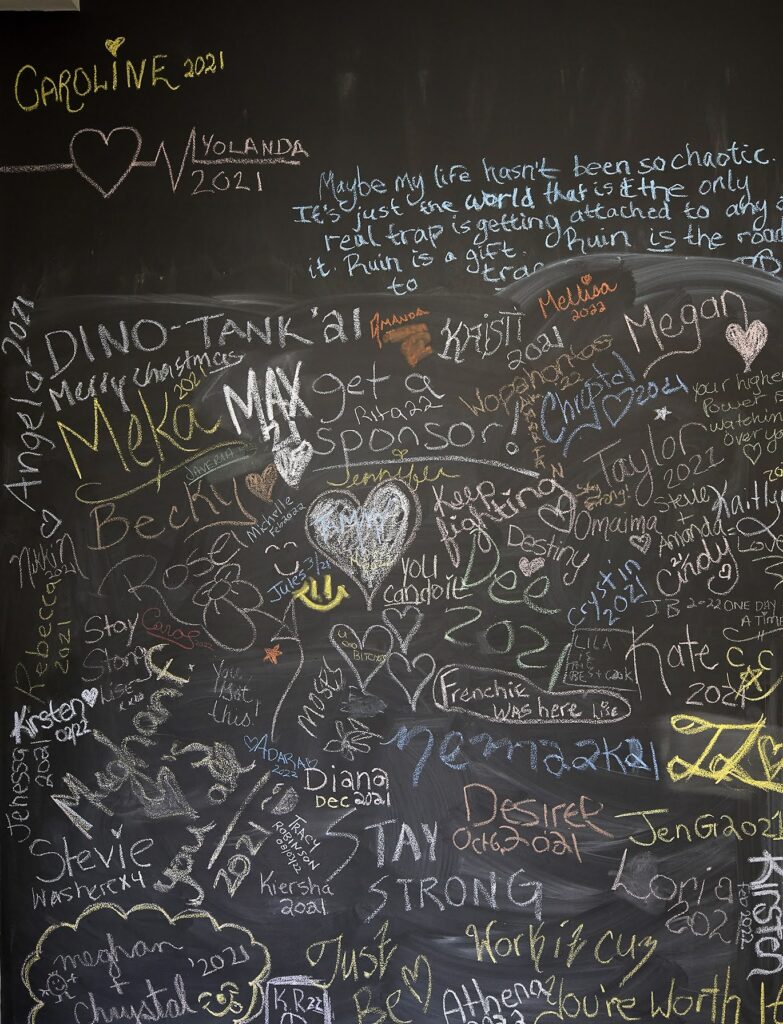 CAROLINE 2021
YOLANDA
2021
Maybe my life hasn't been so chaotic.
It's just the world that is & the only
real trap is getting attached to any
it. Ruin is a gift. Ruin is the road
to tra
Angela 2021
DINO-TANK '21
AMANDA
KRISTI
2021
Mellisa
2022
Megan
Merry Christmas
Meka
2021
MAX
get a
Rita 22
sponsor!
Wopahontas
22
Chrystal 2021
Your higher
Power
watching
over you
Taylor
2021
Jennifer
Becky
Michelle
Feb 2022
Keep
fighting
Destiny
Stay
Strong!
Omaima
Stevie
+
Amanda
Kaitly
Cindy
Nikki
Rebecca
2021
Rose
Jules 3/21
You
can do it
Dee
2021
Crystin
2021
JB 2022
ONE DAY
A Time
Stay
Strong
You
got
this!
u
BITCHES
Moses
LILA
Kate
2021
Frenchie
was here
Kirsten
02/22
Jenessa
2021
Meghan
ADARIA
2022
nemaak21
IZ
Diana
Dec 2021
Desiree
Oct 6, 2021
JenG 2021
Stevie
Washer x4
you
2021
TRACY
ROBINSON
Kiersha
2021
STAY
STRONG
Loria
202
Kirston
2022
meghan
+
Chrystal
'2021
Just
Be
K.R 22
Work it cuz
You're Worth
Athena
2022